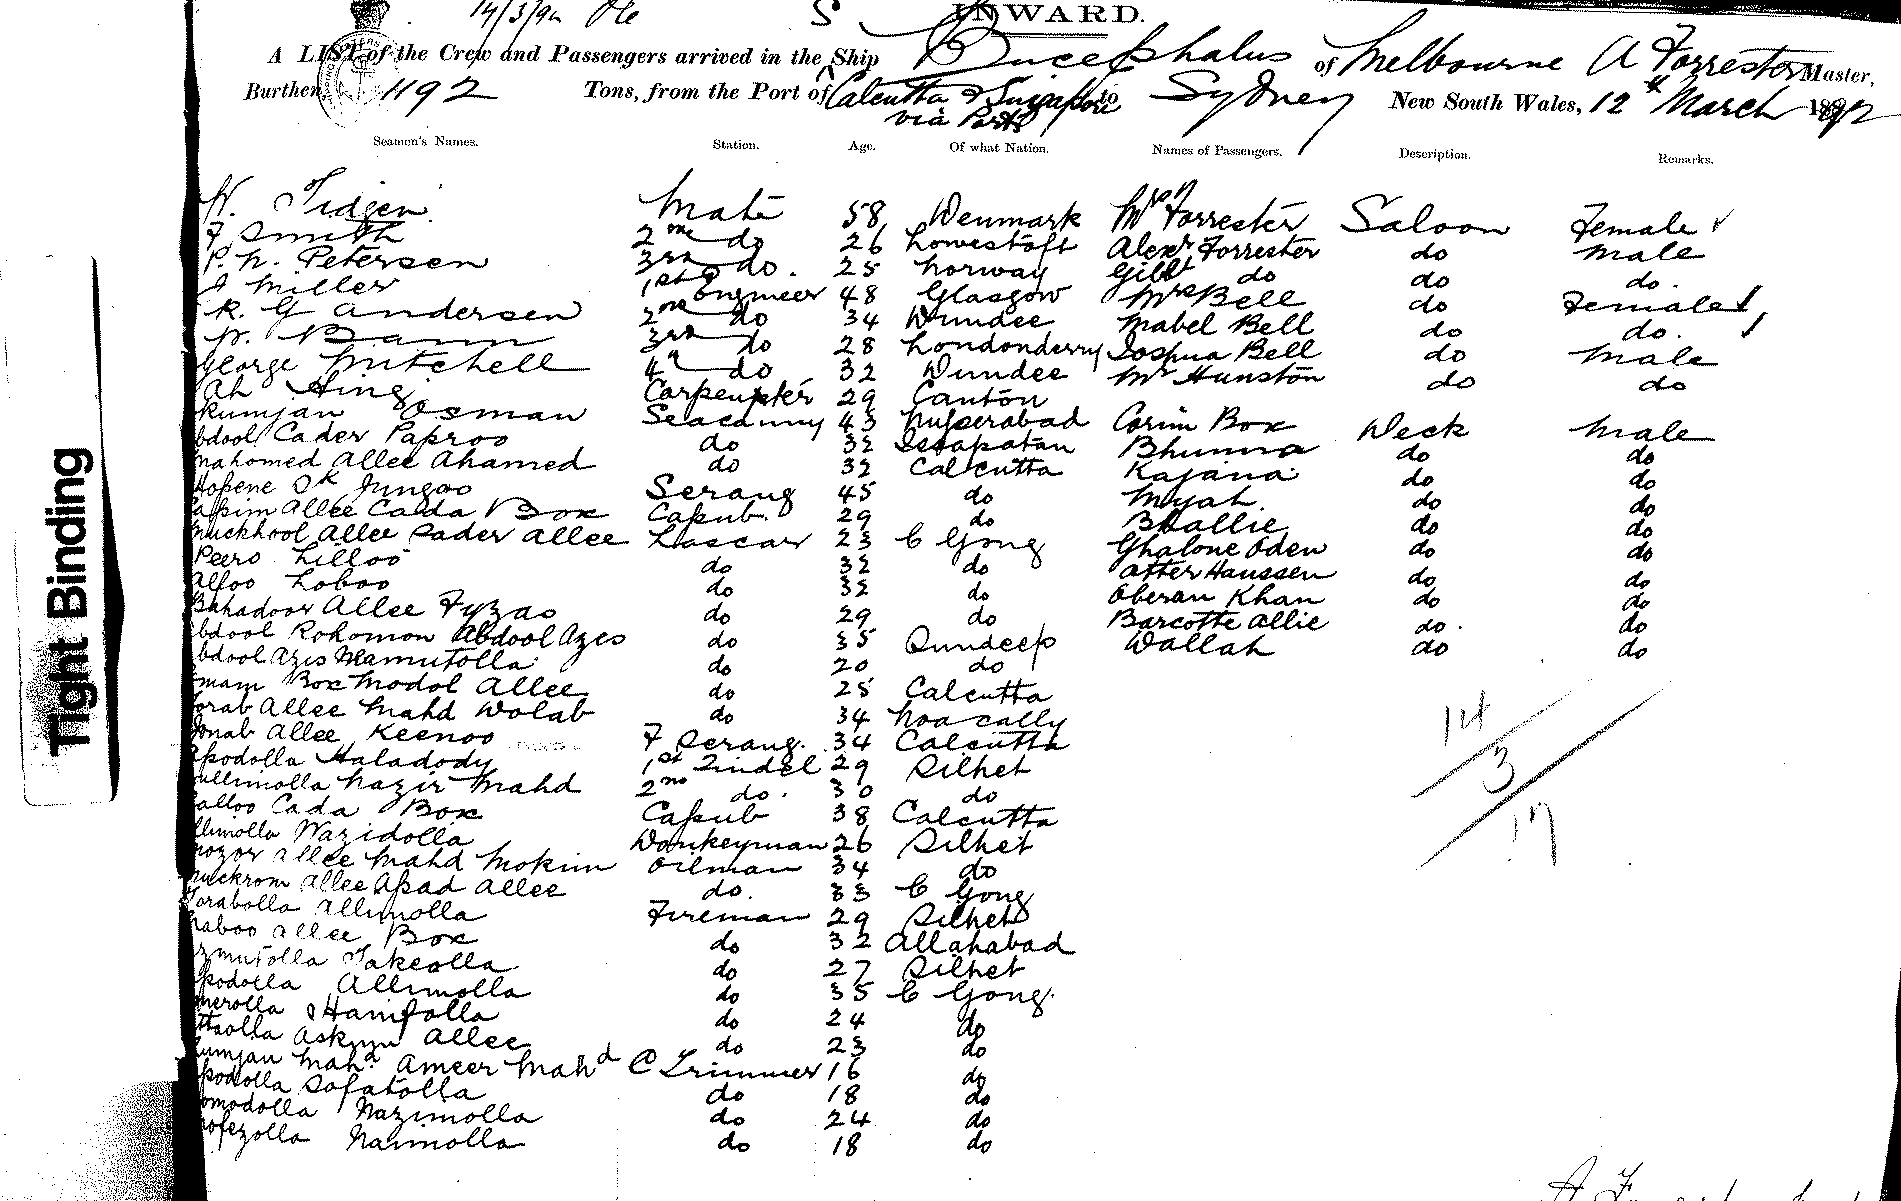 14/3/92
S
INWARD.
A LIST of the Crew and Passengers arrived in the Ship Bucephalus of Melbourne A Forrester Master,
Burthen 1192 Tons, from the Port of Calcutta & Singapore to Sydney New South Wales, 12th March 1892
via Ports
Seamen's Names. Station. Age. Of what Nation. Names of Passengers. Description. Remarks.
H. Tidgen Mate 58 Denmark Mrs Forrester Saloon Female
F Smith 2nd do 26 Lowestoft Alexr Forrester do Male
P. N. Petersen 3rd do. 25 Norway Gilbt do do do.
J Miller 1st Engineer 48 Glasgow Mrs Bell do Female
R. G Andersen 2nd do 34 Dundee Mabel Bell do do.
W. Bann 3rd do 28 Londonderry Joshua Bell do Male
George Mitchell 4th do 32 Dundee Mr Hunston do do
Ah Hing Carpenter 29 Canton
Rumjan Osman Seacunny 43 Nusserabad Corim Box Deck Male
bdool Cader Paproo do 32 Isapatan Bhunna do do
Mahomed Allee Ahamed do 32 Calcutta Kajana do do
Hosene Sk Jungoo Serang 45 do Myah do do
assim Allee Cada Box Cassub. 29 do Bhallie do do
Muckhool Allee Sader Allee Lascar 23 C Gong Ghalone Oden do do
Peero Lilloo do 32 do Atter Haussen do do
Alloo Loboo do 32 do Oberan Khan do do
Bahadoor Allee Fyzao do 29 do Barcotte Allie do. do
bdool Rohomon Abdool Azes do 35 Sundeep Wallah do do
bdool Azis Mamutolla do 20 do
mam Box Modol Allee do 25 Calcutta
orab Allee Mahd Wolab do 34 Noacally
onab Allee Keenoo F Serang. 34 Calcutta
ssodolla Haladody 1st Tindel 29 Silhet
ullimolla Nazir Mahd 2nd do. 30 do
alloo Cada Box Cassub 38 Calcutta
llimolla Wazidolla Donkeyman 26 Silhet
mozor Allee Mahd Mokim Oilman 34 do
muckrom Allee Assad Allee do. 33 C Gong
orabolla Allimolla Fireman 29 Silhet
naboo Allee Box do 32 Allahabad
zmutolla Takeolla do 27 Silhet
ssodolla Allimolla do 35 C Gong.
merolla Haniffolla do 24 do
ttaolla Askun Allee do 23 do
umjan Mahd Ameer Mahd C Trimmer 16 do
ssodolla Sofatolla do 18 do
omodolla Nazimolla do 24 do
ofezolla Naimolla do 18 do
14
3
17
Tight Binding